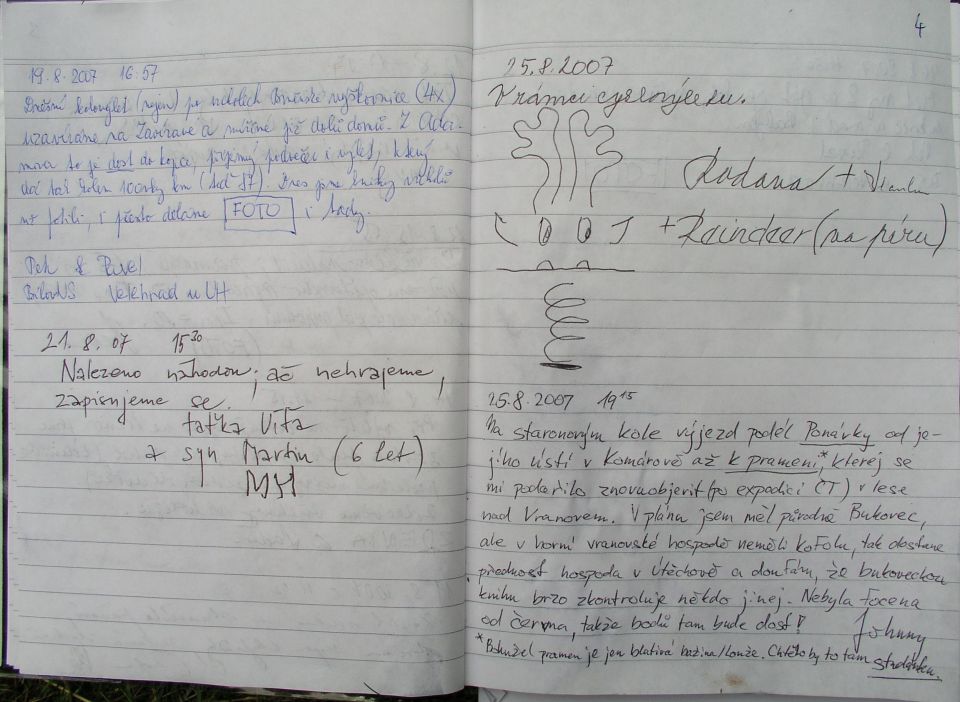 19.8.2007 16:57
Dnešní po Brněnské (4x)
uzavíráme na Zavíravé a míříme již dolů domů. Z Ada-
mova to je dost do kopce, příjemný podvečer i výlet, který
dá tak 100vky km (teď 87). Dnes jsme knihy
i přesto děláme FOTO i tady.
& Pavel
Velehrad u UH
21. 8. 07 15³⁰
Nalezeno náhodou; ač nehrajeme,
zapisujeme se.
taťka Víťa
a syn Martin (6 let)
4
25.8.2007
V rámci cyklovýletu.
Radana +
+ Reindeer (na péru)
25.8.2007 19¹⁵
Na staronovým kole výjezd podél Ponávky od je-
jího ústí v Komárově až k prameni*, kterej se
mi podařilo znovuobjevit (po expedici ČT) v lese
nad Vranovem. V plánu jsem měl původně Bukovec,
ale v horní vranovské hospodě neměli kofolu, tak dostane
přednost hospoda v Útěchově a doufám, že bukoveckou
knihu brzo zkontroluje někdo jinej. Nebyla focena
od června, takže bodů tam bude dost!
Johnny
*Bohužel pramen je jen blativá bažina/louže. Chtělo by to tam studánku.